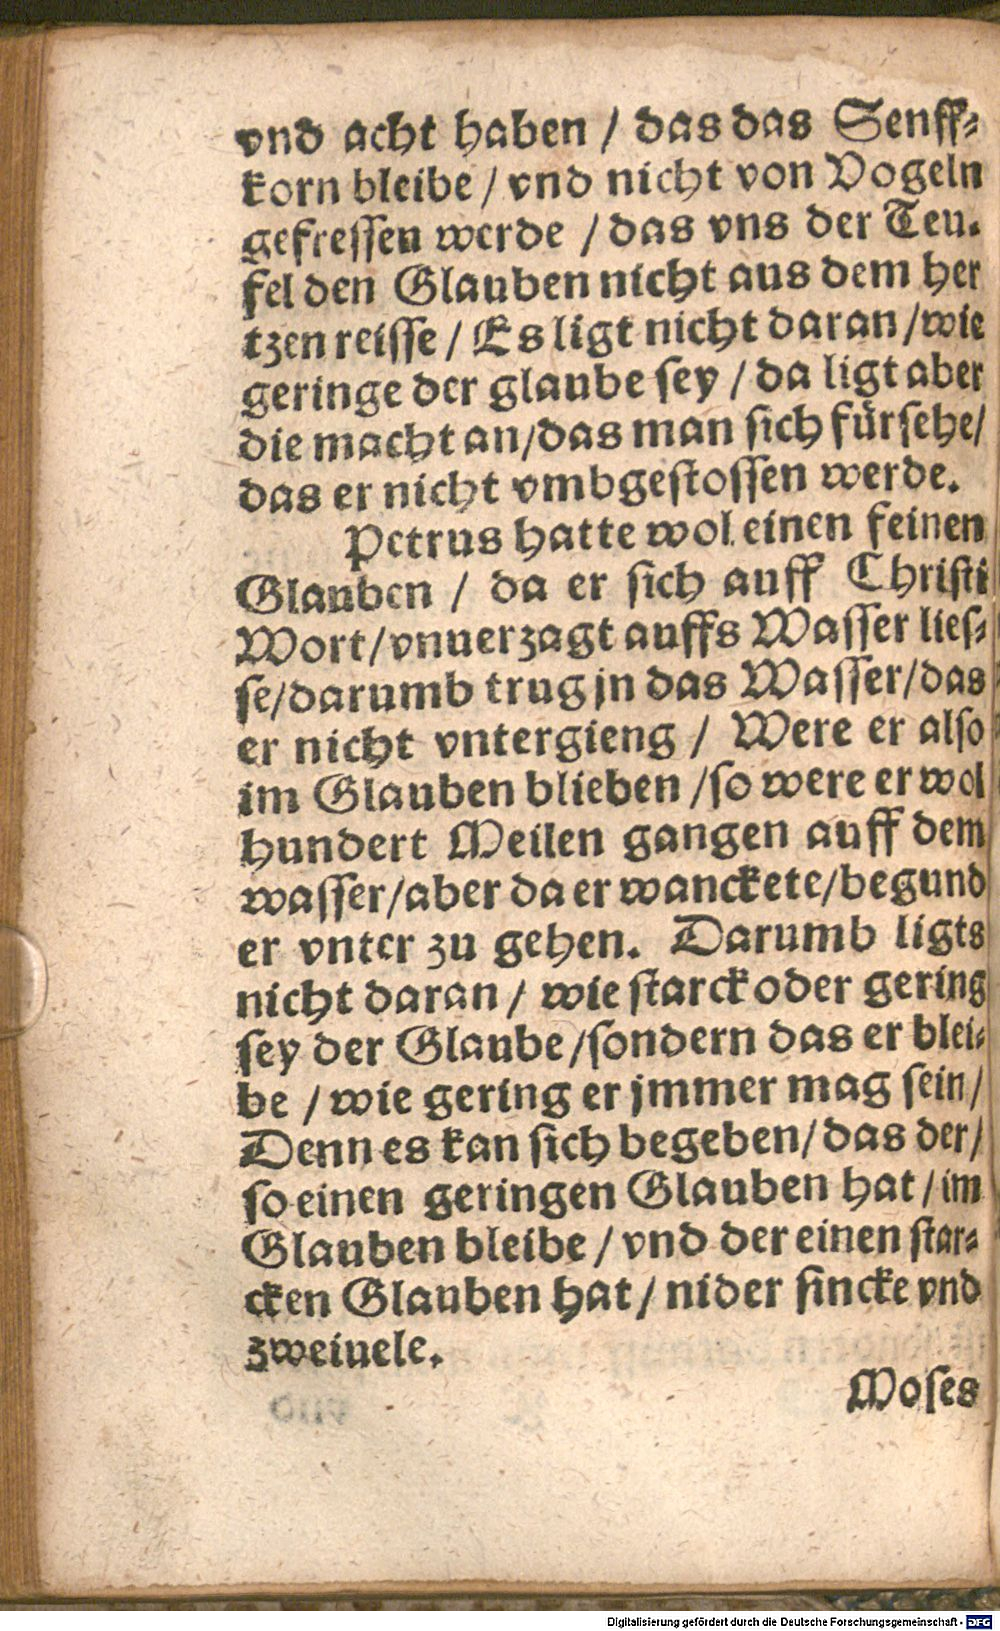 vnd acht haben / das das Senff-
korn bleibe / vnd nicht von Vogeln
gefressen werde / das vns der Teu-
fel den Glauben nicht aus dem her
tzen reisse / Es ligt nicht daran / wie
geringe der glaube sey / da ligt aber
die macht an / das man sich fürsehe /
das er nicht vmbgestossen werde.
Petrus hatte wol einen feinen
Glauben / da er sich auff Christi
Wort / vnuerzagt auffs Wasser lies-
se / darumb trug jn das Wasser / das
er nicht vntergieng / Were er also
im Glauben blieben / so were er wol
hundert Meilen gangen auff dem
wasser / aber da er wanckete / begund
er vnter zu gehen. Darumb ligts
nicht daran / wie starck oder gering
sey der Glaube / sondern das er blei-
be / wie gering er jmmer mag sein /
Denn es kan sich begeben / das der /
so einen geringen Glauben hat / im
Glauben bleibe / vnd der einen star-
cken Glauben hat / nider sincke vnd
zweiuele.
Moses
Digitalisierung gefördert durch die Deutsche Forschungsgemeinschaft - DFG